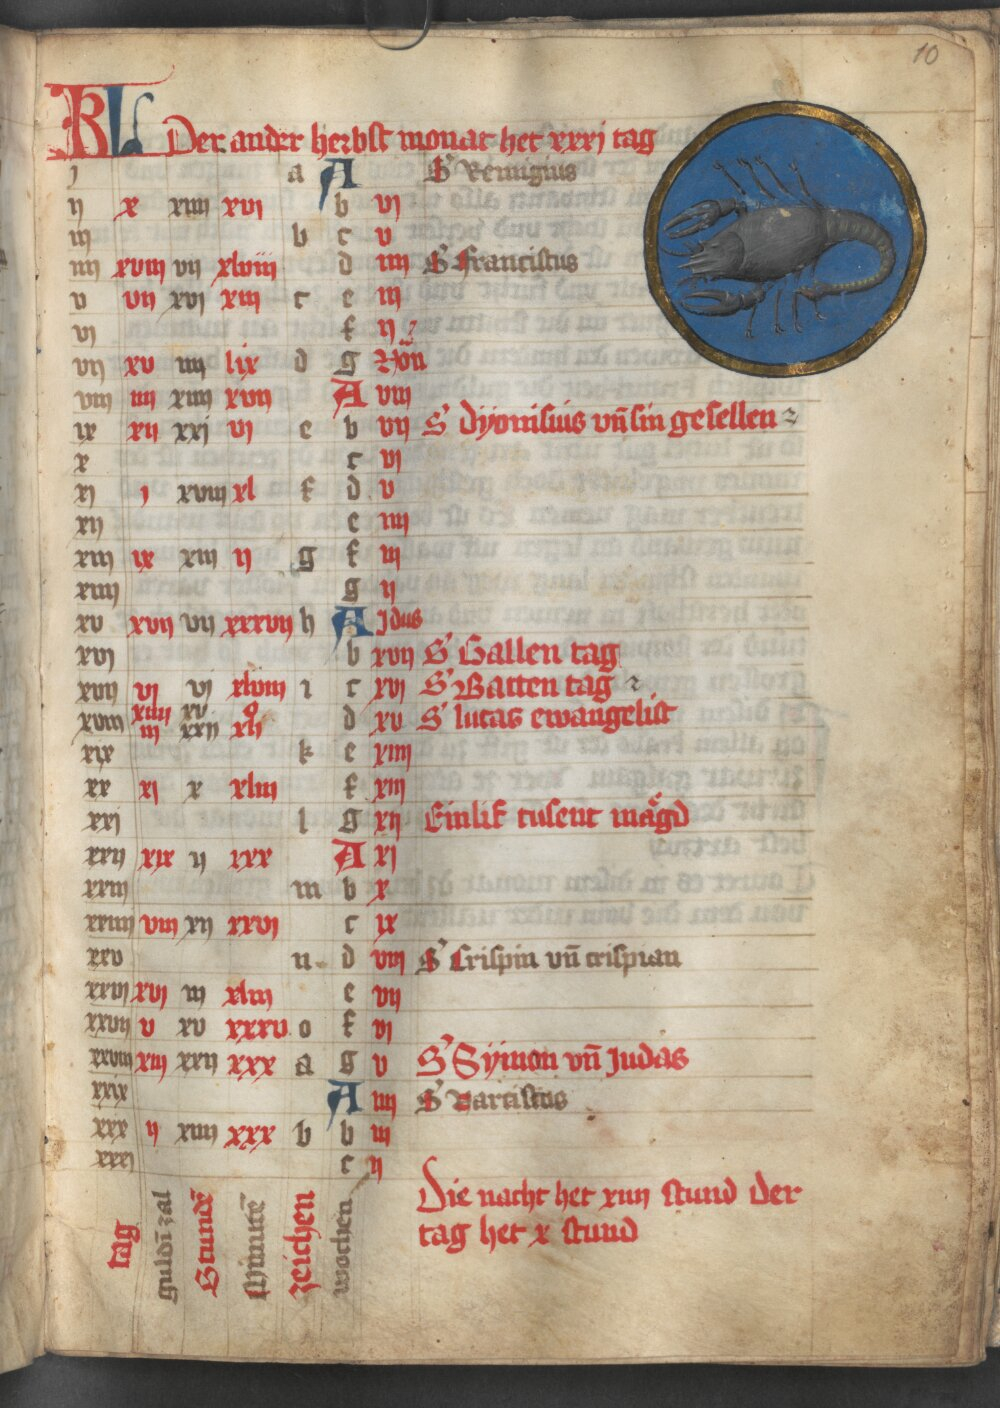 10
KL Der ander herbst monat het xxxj tag
j a A S' Remigius
ij x xiiij xvj b vj
iij b c v
iiij xviij vij xlviij d iiij S' franciscus
v vij xvj xiij c e iij
vj f ij
vij xv iiij lix d g Non̄
viij iiij xiiij xvij A viij
ix xij xxj vj e b vij S' dyonisius vn̄ sin gesellen
x c vj
xj j xviij xl f d v
xij e iiij
xiij ix xiij ij g f iij
xiiij g ij
xv xvij vij xxxvij h A Jdus
xvj b xvij S' Gallen tag
xvij vj vj xlviij i c xvj S' Batten tag
xiiij xv o
xviij iij xxij xlj d xv S' lucas ewangelist
xix k e xiiij
xx xj x xliij f xiij
xxj l g xij Einlif tusent mågd
xxij xix ij xxx A xj
xxiij m b x
xxiiij viij xij xxvj c ix
xxv n d viij S' Crispin vn̄ crispian
xxvj xvj iij xliij e vij
xxvij v xv xxxv o f vj
xxviij xiij xxij xxx a g v S' Symon vn̄ Judas
xxix A iiij S' Narcissus
xxx ij xiiij xxx b b iij
xxxj c ij
Die nacht het xiiij stund der
tag het x stund
tag
guldī zal
Stundē
Minutē
zeichen
wochen